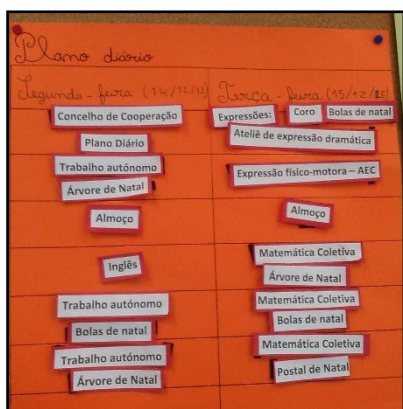 Plano diário
Segunda-feira (14/12/15)
Concelho de Cooperação
Plano Diário
Trabalho autónomo
Árvore de Natal
Almoço
Inglês
Trabalho autónomo
Bolas de natal
Trabalho autónomo
Árvore de Natal
Terça-feira (15/12/15)
Expressões: Coro Bolas de natal
Ateliê de expressão dramática
Expressão físico-motora – AEC
Almoço
Matemática Coletiva
Árvore de Natal
Matemática Coletiva
Bolas de natal
Matemática Coletiva
Postal de Natal